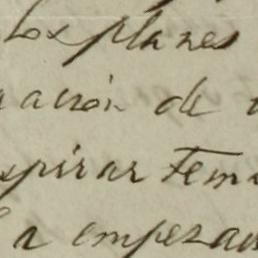 los planes
ación de
spirar tem
a empeza